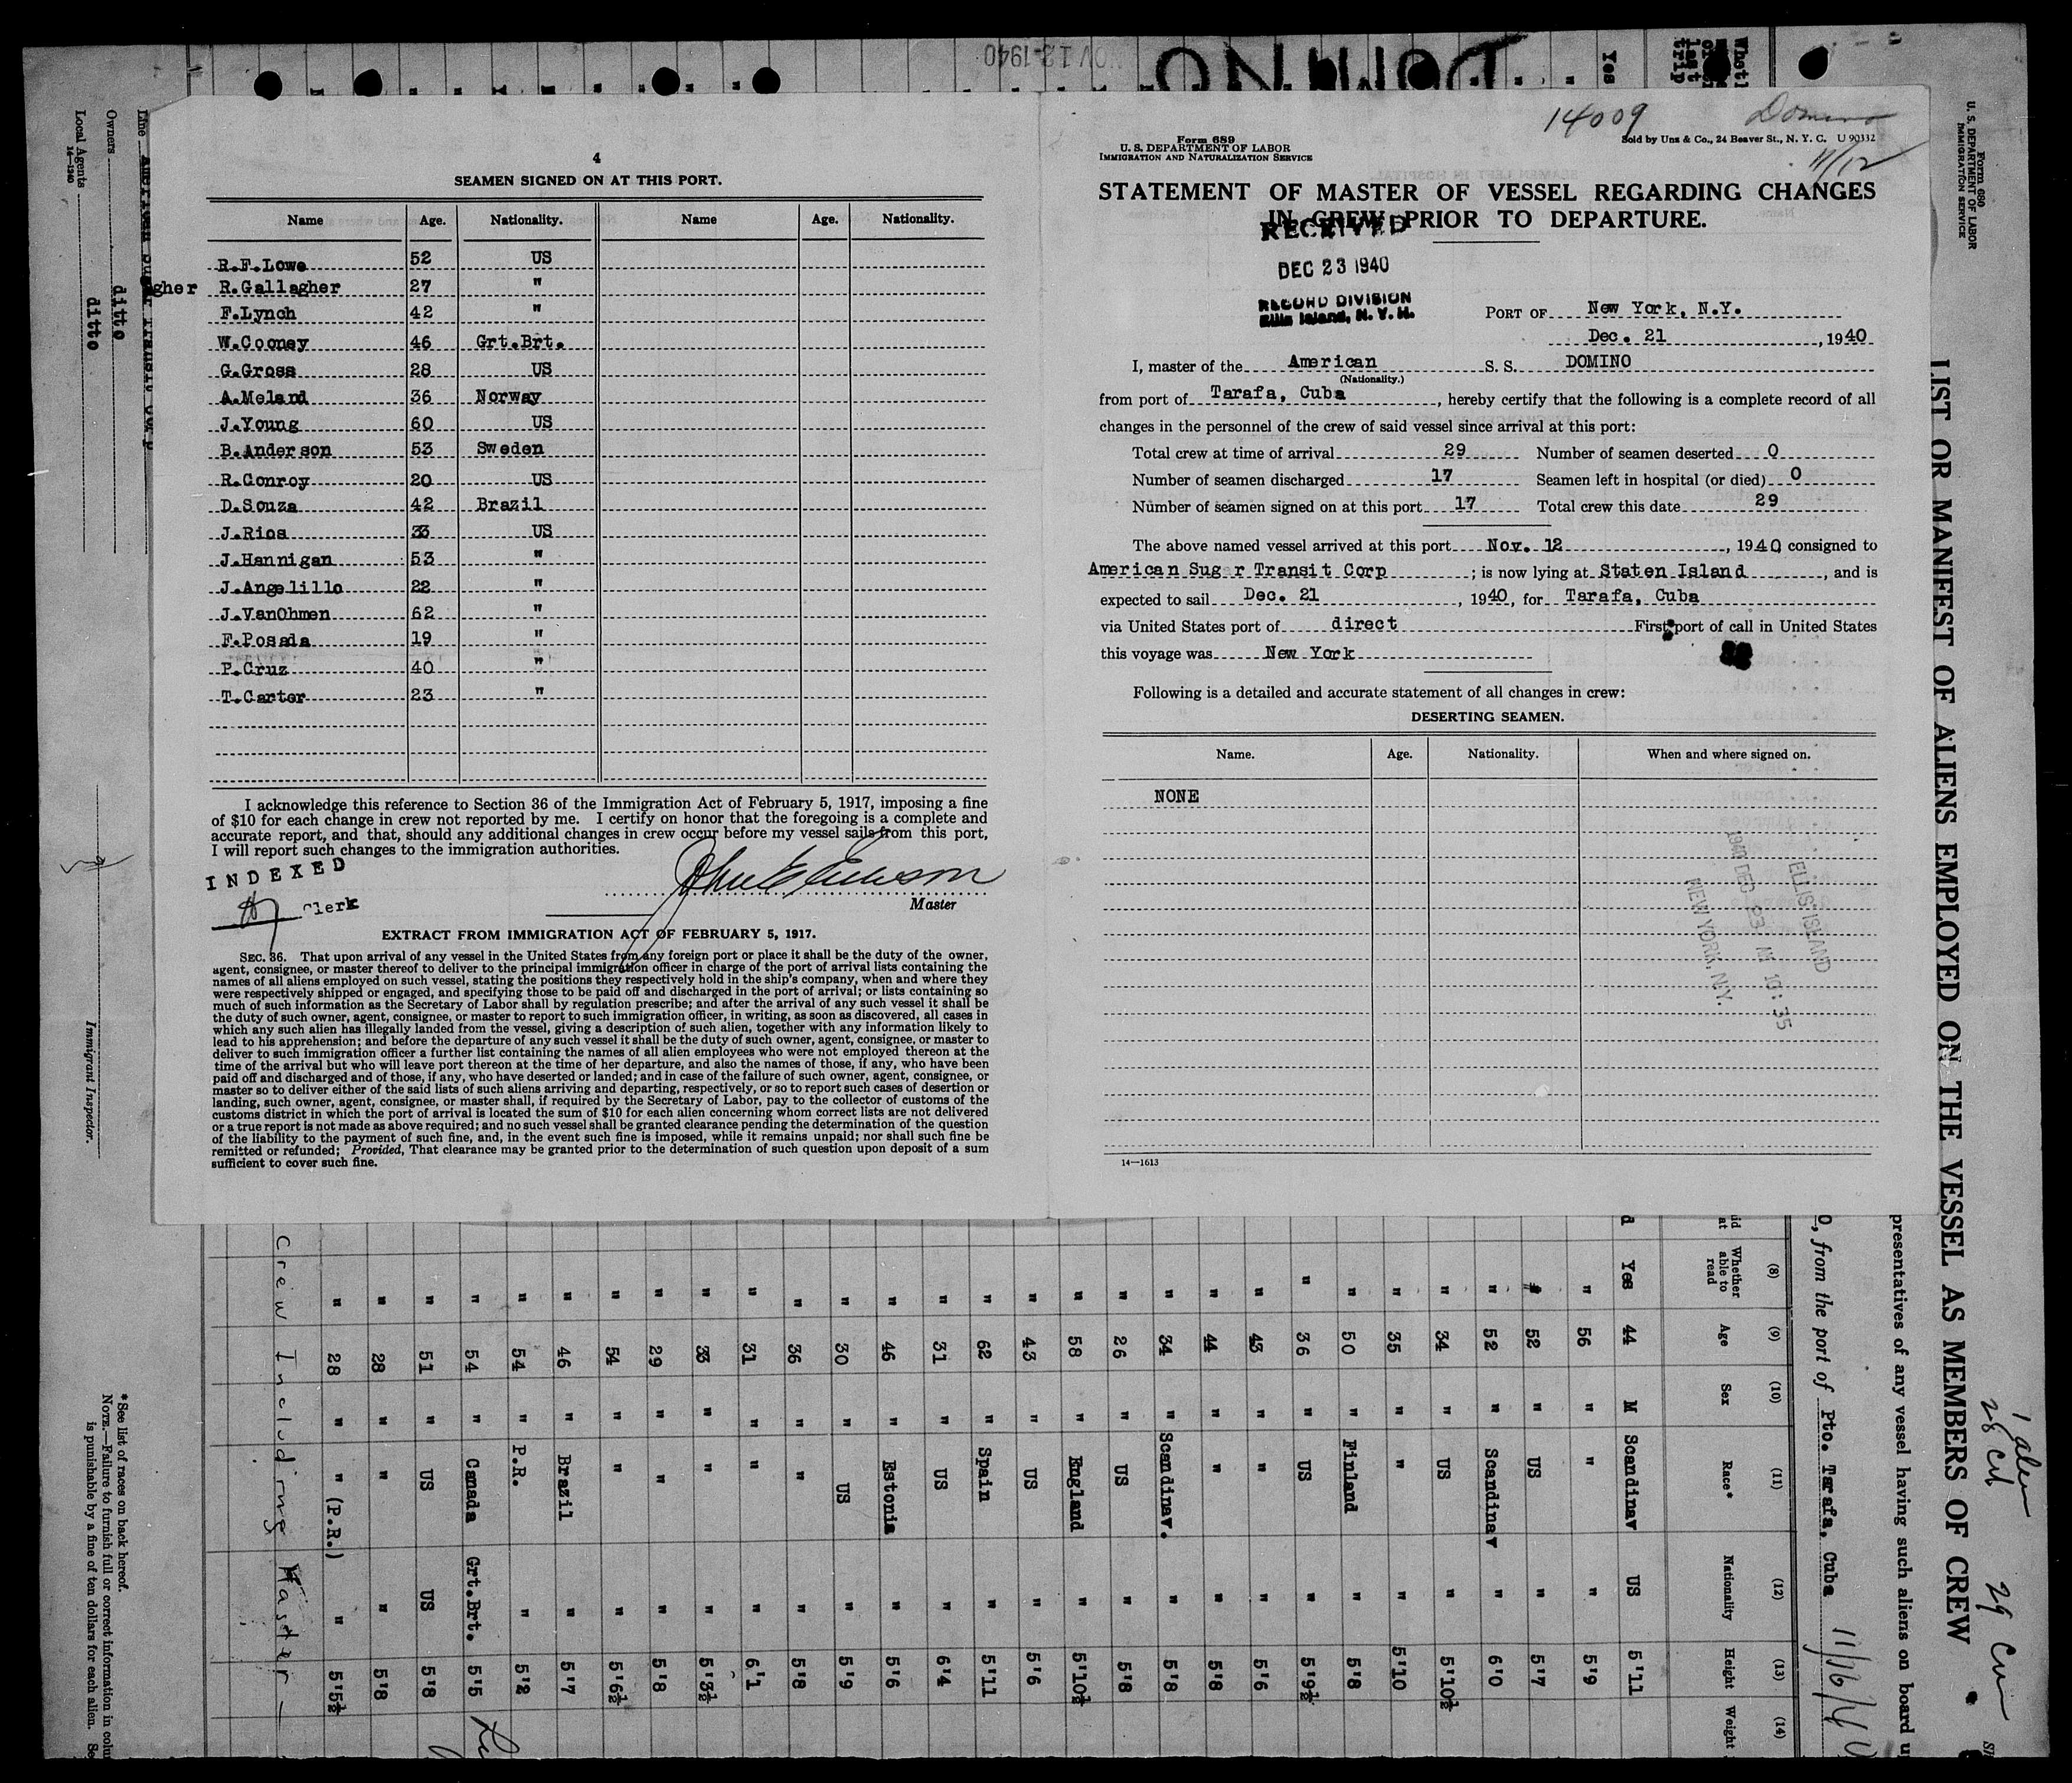 4
SEAMEN SIGNED ON AT THIS PORT.
Name Age. Nationality. Name Age. Nationality.
R.F.Lowe 52 US
gher R.Gallagher 27 "
F.Lynch 42 "
W.Cooney 46 Grt.Brt.
G.Gross 28 US
A.Meland 36 Norway
J.Young 60 US
B.Anderson 53 Sweden
R.Conroy 20 US
D.Souza 42 Brazil
J.Rios 33 US
J.Hannigan 53 "
J.Angelillo 22 "
J.VanOhmen 62 "
F.Posada 19 "
P.Cruz 40 "
T.Carter 23 "
I acknowledge this reference to Section 36 of the Immigration Act of February 5, 1917, imposing a fine
of $10 for each change in crew not reported by me. I certify on honor that the foregoing is a complete and
accurate report, and that, should any additional changes in crew occur before my vessel sails from this port,
I will report such changes to the immigration authorities.
INDEXED
Clerk
Master
EXTRACT FROM IMMIGRATION ACT OF FEBRUARY 5, 1917.
SEC. 36. That upon arrival of any vessel in the United States from any foreign port or place it shall be the duty of the owner,
agent, consignee, or master thereof to deliver to the principal immigration officer in charge of the port of arrival lists containing the
names of all aliens employed on such vessel, stating the positions they respectively hold in the ship's company, when and where they
were respectively shipped or engaged, and specifying those to be paid off and discharged in the port of arrival; or lists containing so
much of such information as the Secretary of Labor shall by regulation prescribe; and after the arrival of any such vessel it shall be
the duty of such owner, agent, consignee, or master to report to such immigration officer, in writing, as soon as discovered, all cases in
which any such alien has illegally landed from the vessel, giving a description of such alien, together with any information likely to
lead to his apprehension; and before the departure of any such vessel it shall be the duty of such owner, agent, consignee, or master to
deliver to such immigration officer a further list containing the names of all alien employees who were not employed thereon at the
time of the arrival but who will leave port thereon at the time of her departure, and also the names of those, if any, who have been
paid off and discharged and of those, if any, who have deserted or landed; and in case of the failure of such owner, agent, consignee, or
master so to deliver either of the said lists of such aliens arriving and departing, respectively, or so to report such cases of desertion or
landing, such owner, agent, consignee, or master shall, if required by the Secretary of Labor, pay to the collector of customs of the
customs district in which the port of arrival is located the sum of $10 for each alien concerning whom correct lists are not delivered
or a true report is not made as above required; and no such vessel shall be granted clearance pending the determination of the question
of the liability to the payment of such fine, and, in the event such fine is imposed, while it remains unpaid; nor shall such fine be
remitted or refunded; Provided, That clearance may be granted prior to the determination of such question upon deposit of a sum
sufficient to cover such fine.
14009 Domino
Form 689
U. S. DEPARTMENT OF LABOR
IMMIGRATION AND NATURALIZATION SERVICE
Sold by Unz & Co., 24 Beaver St., N. Y. C. U 90332
11/12
STATEMENT OF MASTER OF VESSEL REGARDING CHANGES
IN CREW PRIOR TO DEPARTURE.
RECEIVED
DEC 23 1940
RECORD DIVISION
Ellis Island, N. Y. H.
PORT OF New York, N.Y.
Dec. 21, 1940
I, master of the American S. S. DOMINO
(Nationality.)
from port of Tarafa, Cuba, hereby certify that the following is a complete record of all
changes in the personnel of the crew of said vessel since arrival at this port:
Total crew at time of arrival 29 Number of seamen deserted 0
Number of seamen discharged 17 Seamen left in hospital (or died) 0
Number of seamen signed on at this port 17 Total crew this date 29
The above named vessel arrived at this port Nov. 12, 1940, consigned to
American Sug r Transit Corp; is now lying at Staten Island, and is
expected to sail Dec. 21, 1940, for Tarafa, Cuba
via United States port of direct First port of call in United States
this voyage was New York
Following is a detailed and accurate statement of all changes in crew:
DESERTING SEAMEN.
Name. Age. Nationality. When and where signed on.
NONE
ELLIS ISLAND
1940 DEC 23 AM 10:35
NEW YORK, N.Y.
14—1613
NOV 12 1940
DOMINO
Yes
trip
Form 680
U. S. DEPARTMENT OF LABOR
IMMIGRATION SERVICE
LIST OR MANIFEST OF ALIENS EMPLOYED ON THE VESSEL AS MEMBERS OF CREW
1 alien
28 Cit
29 Crew
presentatives of any vessel having such aliens on board u
0, from the port of Pto. Tarafa, Cuba 11/16/40
(8) Whether able to read (9) Age (10) Sex (11) Race* (12) Nationality (13) Height (14) Weight
Yes 44 M Scandinav US 5'11
" 56 " " " 5'9
" 52 " US " 5'7
" 52 " Scandinav " 6'0
" 34 " US " 5'10½
" 35 " " " 5'10
" 50 " Finland " 5'8
" 36 " US " 5'9½
" 43 " " " 5'6
" 44 " " " 5'8
" 34 " Scandinav. " 5'8
" 26 " US " 5'8
" 58 " England " 5'10½
" 43 " US " 5'6
" 62 " Spain " 5'11
" 31 " US " 6'4
" 46 " Estonia " 5'6
" 30 " US " 5'9
" 36 " " " 5'8
" 31 " " " 6'1
" 33 " " " 5'3½
" 29 " " " 5'8
" 54 " " " 5'6½
" 46 " Brazil " 5'7
" 54 " P.R. " 5'2
" 54 " Canada Grt.Brt. 5'5
" 51 " US US 5'8
" 28 " " " 5'8
" 28 " " (P.R.) " 5'5½
Crew Including Master
Line American Sugar Transit Corp
Owners ditto
Local Agents ditto
14—1240
Immigrant Inspector.
* See list of races on back hereof.
NOTE.—Failure to furnish full or correct information in colu
is punishable by a fine of ten dollars for each alien. Se